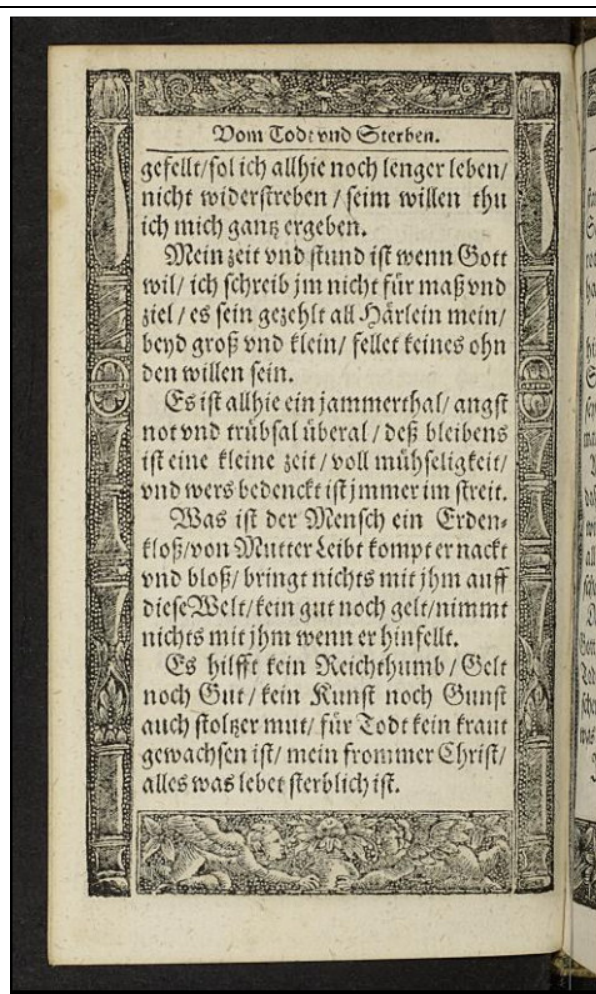 Vom Todt vnd Sterben.
gefellt/sol ich allhie noch lenger leben/
nicht widerstreben / seim willen thu
ich mich gantz ergeben.
Mein zeit vnd stund ist wenn Gott
wil/ ich schreib jm nicht für maß vnd
ziel / es sein gezehlt all Härlein mein/
beyd groß vnd klein/ fellet keines ohn
den willen sein.
Es ist allhie ein jammerthal/ angst
not vnd trübsal überal / deß bleibens
ist eine kleine zeit / voll mühseligkeit/
vnd wers bedenckt ist jmmer im streit.
Was ist der Mensch ein Erden-
kloß/von Mutter Leibt kompt er nackt
vnd bloß/ bringt nichts mit jhm auff
diese Welt/kein gut noch gelt/nimmt
nichts mit jhm wenn er hinfellt.
Es hilfft kein Reichthumb / Gelt
noch Gut / kein Kunst noch Gunst
auch stoltzer mut/ für Todt kein kraut
gewachsen ist/ mein frommer Christ/
alles was lebet sterblich ist.